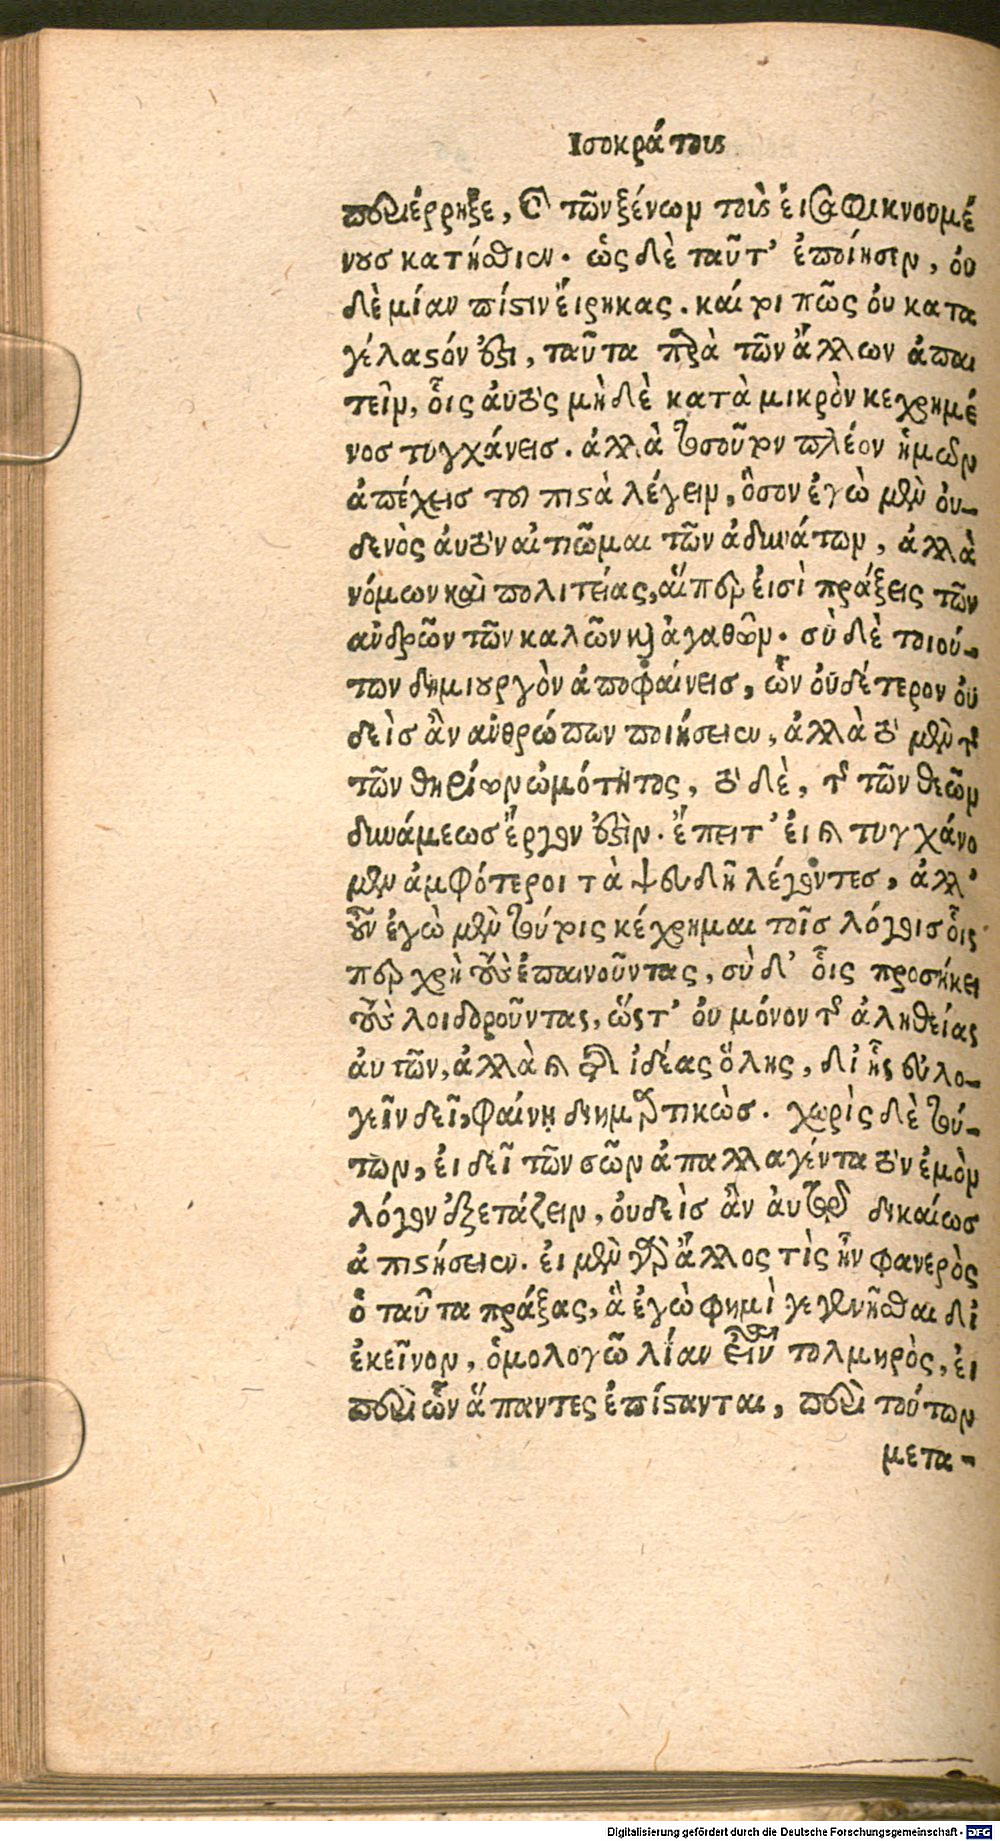 Ισοκράτους
περιέρρηξε, καὶ τῶν ξένων τοὺς εἰσαφικνουμέ
νους κατήσθιεν. ὡς δὲ ταῦτ’ ἐποίησεν, οὐ
δὲ μίαν πίστιν εἴρηκας. καί τοι πῶς οὐ κατα
γέλαστόν ἐστι, ταῦτα παρὰ τῶν ἄλλων ἀπαι
τεῖν, οἷς αὐτὸς μὴ δὲ κατὰ μικρὸν κεχρημέ
νος τυγχάνεις. ἀλλὰ τοσοῦτον πλέον ἡμῶν
ἀπέχεις τοῦ πιστὰ λέγειν, ὅσον ἐγὼ μὲν οὐ-
δενὸς αὐτὸν αἰτιῶμαι τῶν ἀδυνάτων, ἀλλὰ
νόμων καὶ πολιτείας, αἵπερ εἰσὶ πράξεις τῶν
ἀνδρῶν τῶν καλῶν καὶ ἀγαθῶν. σὺ δὲ τοιού-
των δημιουργὸν ἀποφαίνεις, ὧν οὐδέτερον οὐ
δεὶς ἂν ἀνθρώπων ποιήσειεν, ἀλλὰ τὸ μὲν τῆς
τῶν θηρίων ὠμότητος, τὸ δὲ, τῆς τῶν θεῶν
δυνάμεως ἔργον ἐστὶν. ἔπειτ’ εἰ καὶ τυγχάνο
μεν ἀμφότεροι τὰ ψευδῆ λέγοντες, ἀλλ’
οὖν ἐγὼ μὲν τούτοις κέχρημαι τοῖς λόγοις οἷς
περ χρὴ τοὺς ἐπαινοῦντας, σὺ δ’ οἷς προσήκει
τοὺς λοιδοροῦντας, ὥστ’ οὐ μόνον τῆς ἀληθείας
αὐτῶν, ἀλλὰ καὶ τῆς ἰδέας ὅλης, δι’ ἧς εὐλο-
γεῖν δεῖ, φαίνῃ διημαρτηκὼς. χωρὶς δὲ τού-
των, εἰ δεῖ τῶν σῶν ἀπαλλαγέντα τὸν ἐμὸν
λόγον ἐξετάζειν, οὐδεὶς ἂν αὐτῷ δικαίως
ἀπιστήσειεν. εἰ μὲν γὰρ ἄλλος τὶς ἦν φανερὸς
ὁ ταῦτα πράξας, ἃ ἐγὼ φημὶ γεγενῆσθαι δι’
ἐκεῖνον, ὁμολογῶ λίαν εἶναι τολμηρὸς, εἰ
περὶ ὧν ἅπαντες ἐπίστανται, περὶ τούτων
μετα-
Digitalisierung gefördert durch die Deutsche Forschungsgemeinschaft - DFG